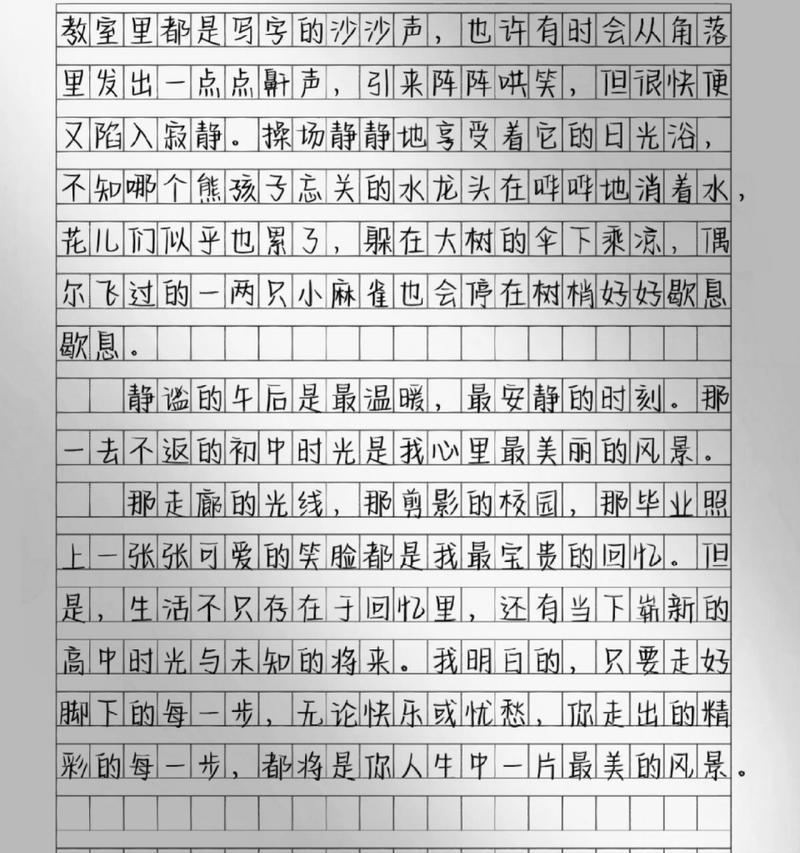 教室里都是写字的沙沙声，也许有时会从角落
里发出一点点鼾声，引来阵阵哄笑，但很快便
又陷入寂静。操场静静地享受着它的日光浴，
不知哪个熊孩子忘关的水龙头在哗哗地淌着水，
花儿们似乎也累了，躲在大树的伞下乘凉，偶
尔飞过的一两只小麻雀也会停在树梢好好歇息
歇息。
静谧的午后是最温暖，最安静的时刻。那
一去不返的初中时光是我心里最美丽的风景。
那走廊的光线，那剪影的校园，那毕业照
上一张张可爱的笑脸都是我最宝贵的回忆。但
是，生活不只存在于回忆里，还有当下崭新的
高中时光与未知的将来。我明白的，只要走好
脚下的每一步，无论快乐或忧愁，你走出的精
彩的每一步，都将是你人生中一片最美的风景。